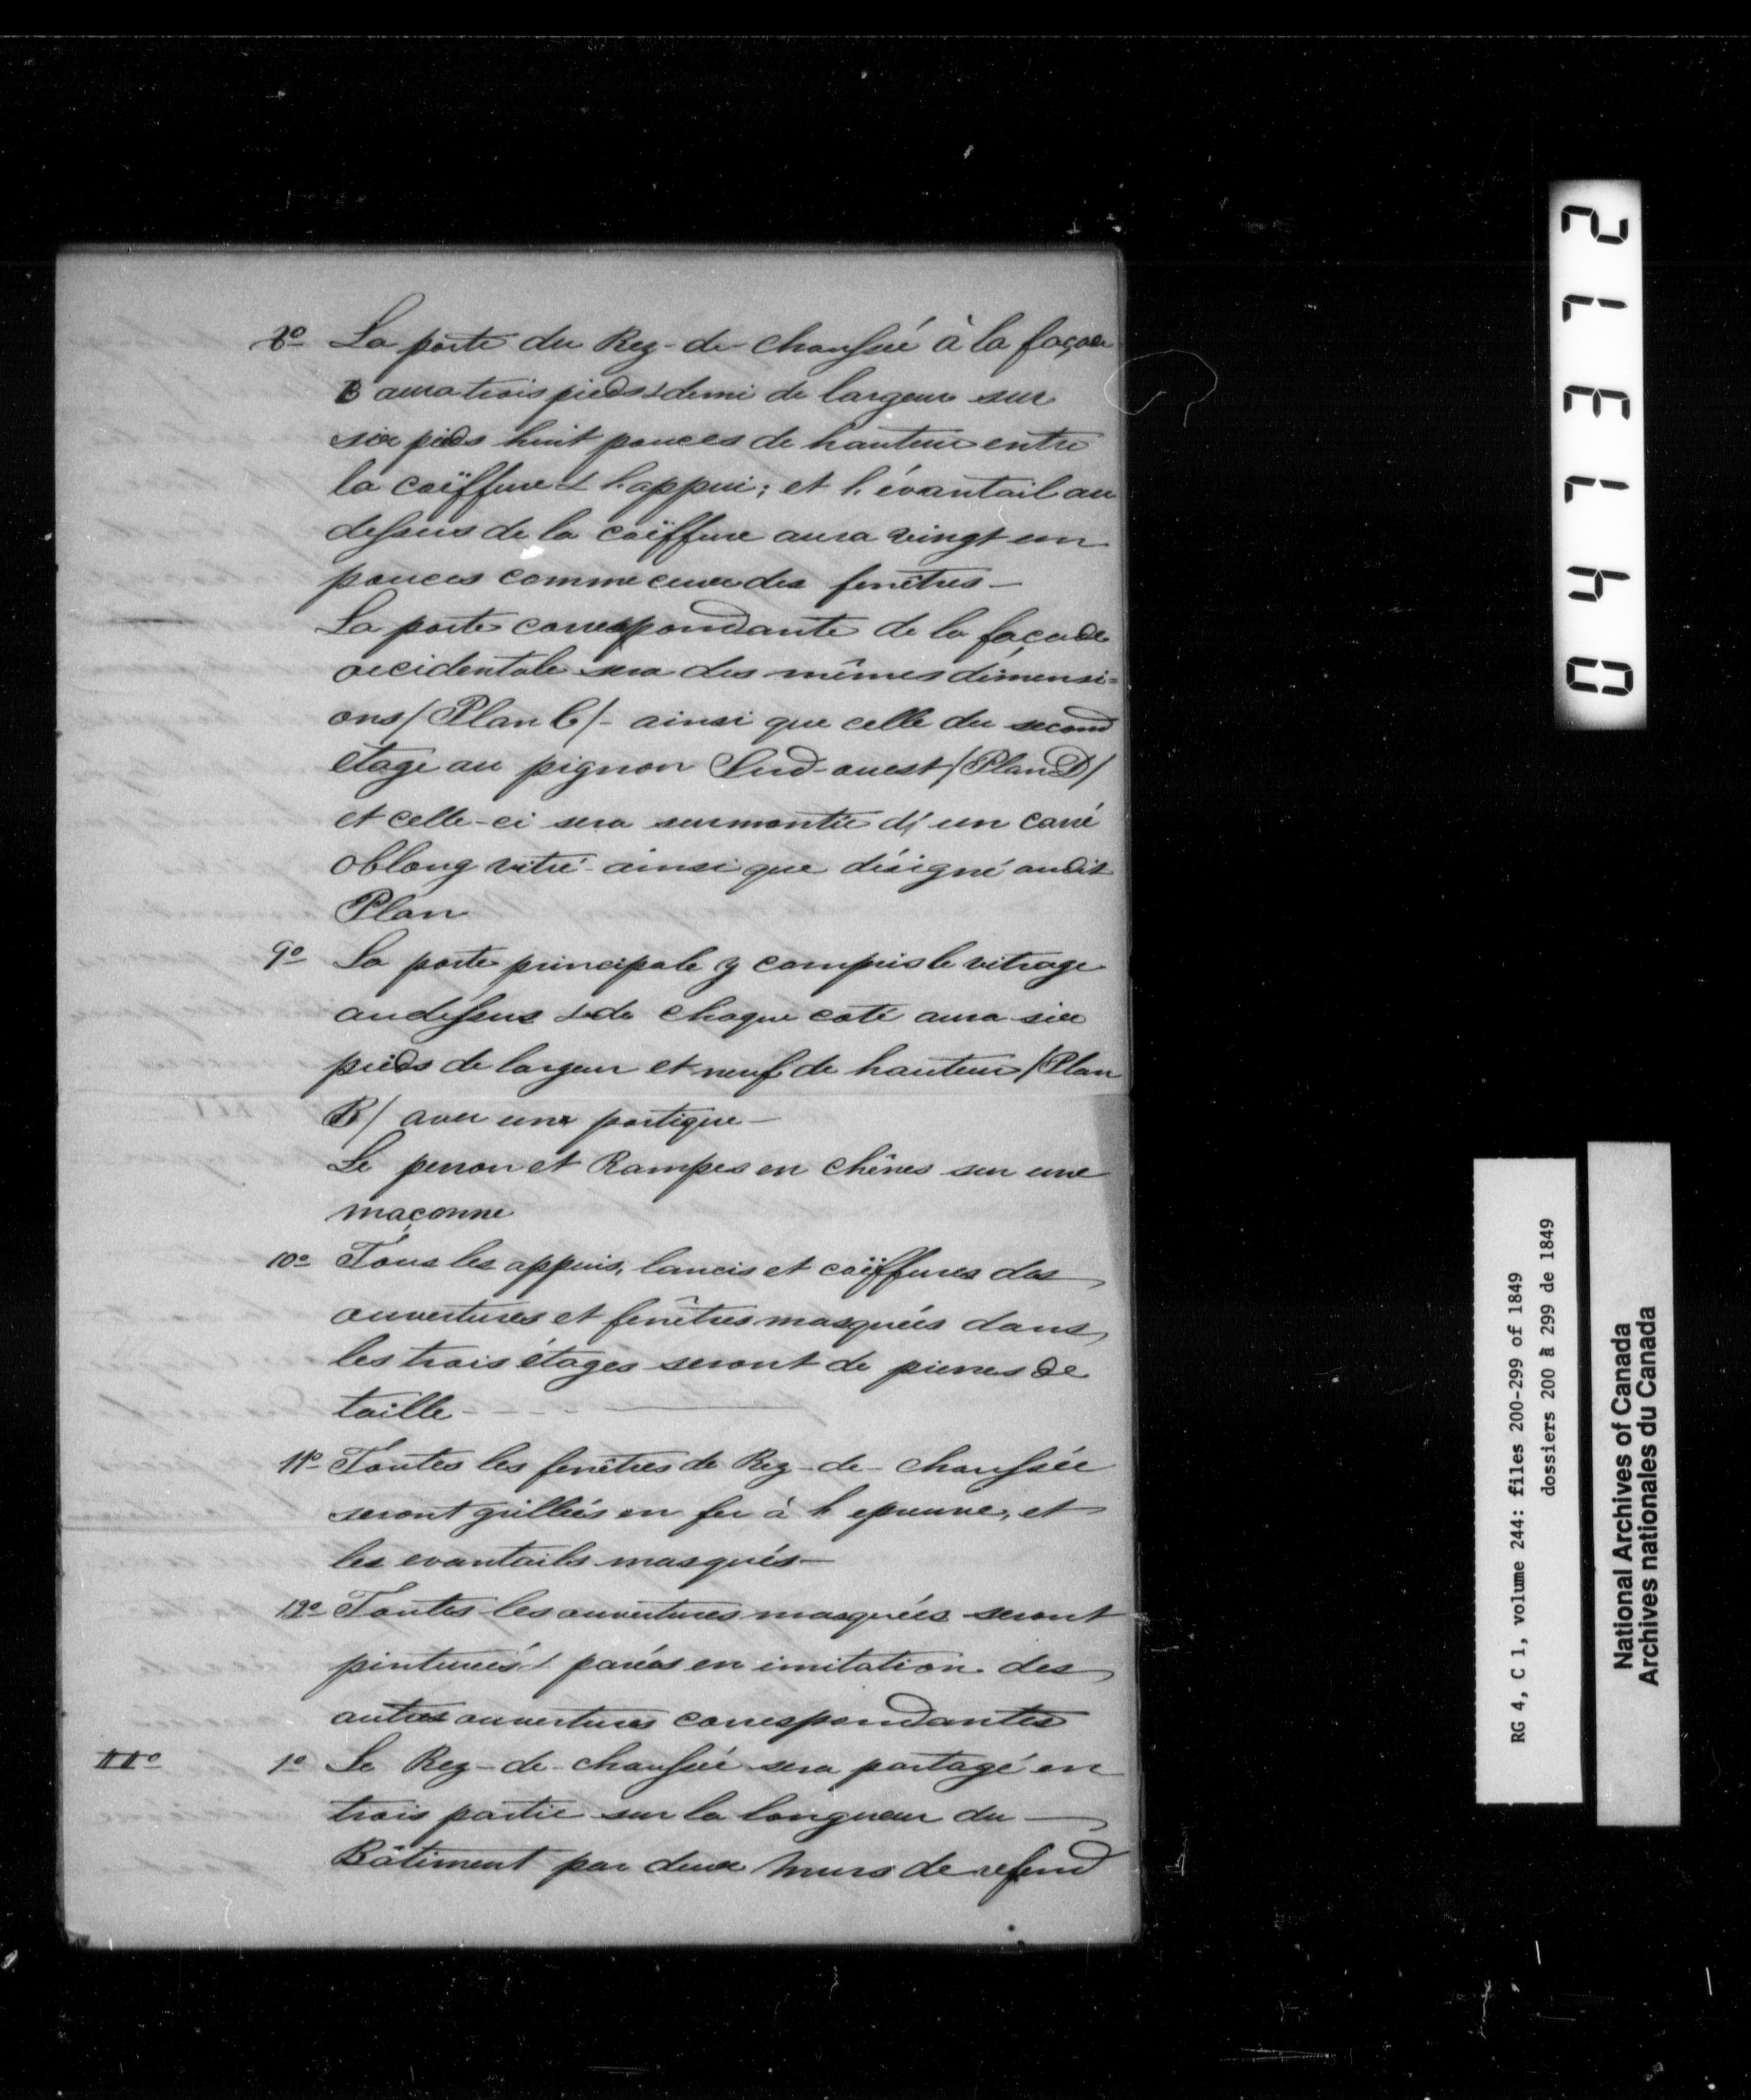 8º La porte du Rez-de-chaussée à la façade
B aura trois pieds & demi de largeur sur
six pieds huit pouces de hauteur entre
la coïffure & l'appui; et l'évantail au
dessus de la coïffure aura vingt un
pouces comme ceux des fenêtres —
La porte correspondante de la façade
occidentale sera des mêmes dimensi=
ons / Plan C / - ainsi que celle du second
étage au pignon Sud-ouest / Plan D /
et celle-ci sera surmontée d'un carré
oblong vitré - ainsi que désigné audit
Plan
9º La porte principale y compris le vitrage
audessus & de chaque coté aura six
pieds de largeur et neuf de hauteur / Plan
B / avec une portique —
Le perron et Rampes en chênes sur une
maçonne
10º Tous les appuis, lancis et coïffures des
ouvertures et fenêtres masquées dans
les trois étages seront de pierres de
taille - - - - —
11º Toutes les fenêtres de Rez-de-chaussée
seront grillées en fer à l'epreuve, et
les evantails masqués —
12º Toutes les ouvertures masquées seront
pinturées & parées en imitation des
autres ouvertures correspondantes
IIº 1º Le Rez-de-chaussée sera partagé en
trois partie sur la longueur du —
Bâtiment par deux murs de refend
047372
RG 4, C 1, volume 244: files 200-299 of 1849
dossiers 200 à 299 de 1849
National Archives of Canada
Archives nationales du Canada